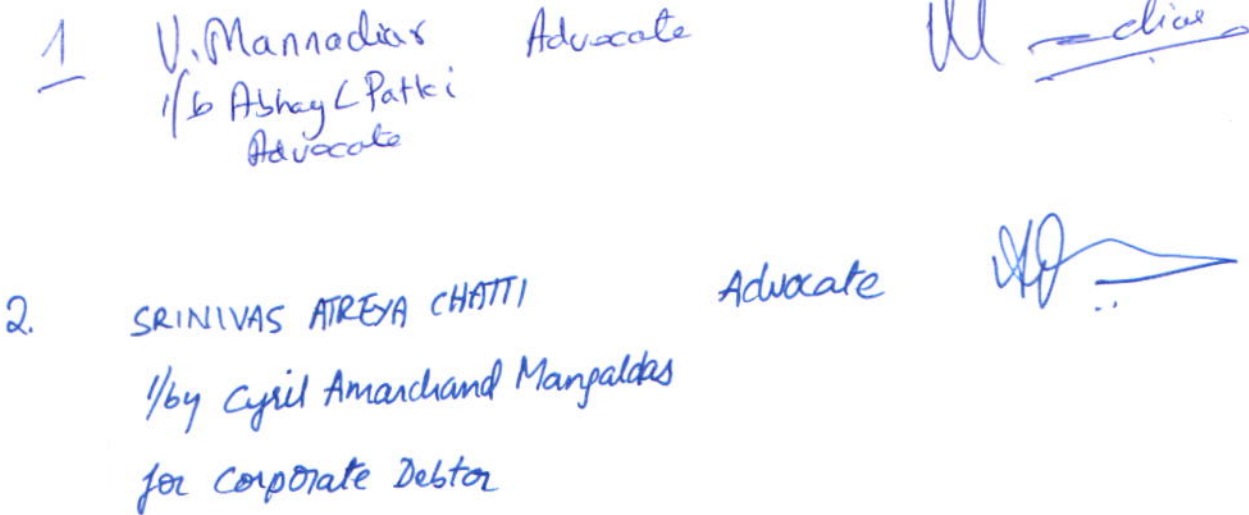 1 V. Mannadiar Advocate
i/b Abhay L Patki
Advocate
2. SRINIVAS ATREYA CHATTI Advocate
i/by Cyril Amarchand Mangaldas
for Corporate Debtor